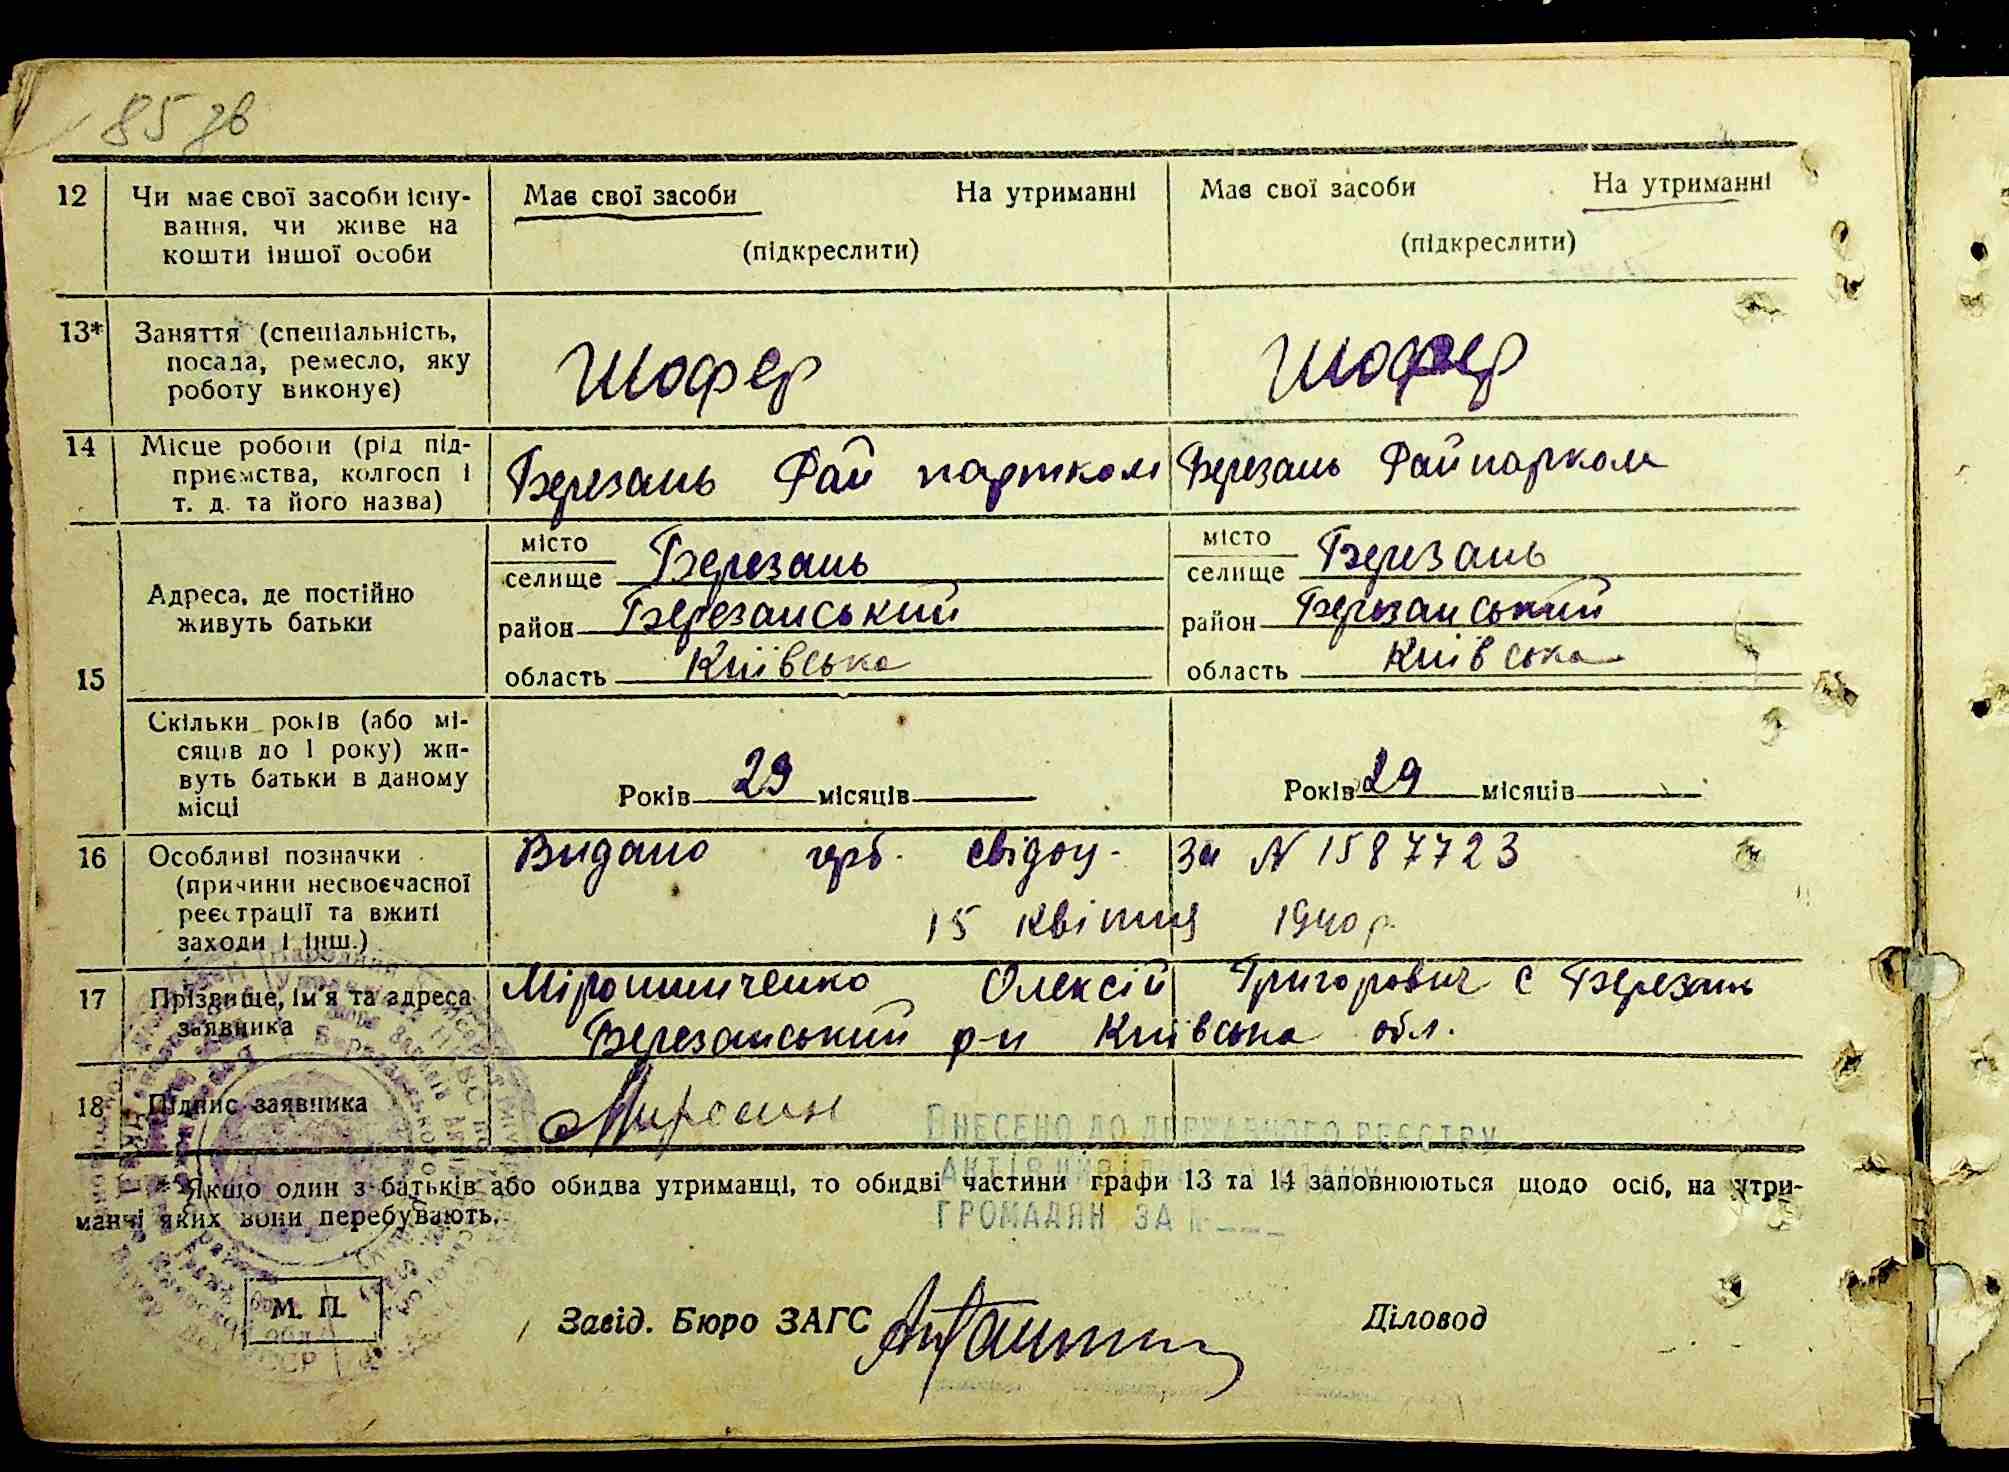 85 зв
12 Чи має свої засоби існу- Має свої засоби На утриманні Має свої засоби На утриманні
вання, чи живе на
кошти іншої особи (підкреслити) (підкреслити)
13* Заняття (спеціальність,
посада, ремесло, яку Шофер Шофер
роботу виконує)
14 Місце роботи (рід під-
приємства, колгосп і Березань Рай партком Березань Райпарком
т. д. та його назва)
місто Березань місто Березань
селище селище
Адреса, де постійно район Березанський район Березанський
живуть батьки
область Київська область Київська
15
Скільки років (або мі-
сяців до 1 року) жи-
вуть батьки в даному Років 29 місяців Років 29 місяців
місці
16 Особливі позначки Видано герб. свідоц. за N 1587723
(причини несвоєчасної
реєстрації та вжиті 15 квітня 1940 р.
заходи і інш.)
17 Прізвище, ім'я та адреса Мірошниченко Олексій Григорович с Березань
заявника Березанський р-н Київська обл.
18 Підпис заявника
ВНЕСЕНО ДО ДЕРЖАВНОГО РЕЄСТРУ
АКТІВ ЦИВІЛЬНОГО СТАНУ
ГРОМАДЯН ЗА №
* Якщо один з батьків або обидва утриманці, то обидві частини графи 13 та 14 заповнюються щодо осіб, на утри-
манні яких вони перебувають.
М. П. Завід. Бюро ЗАГС Діловод